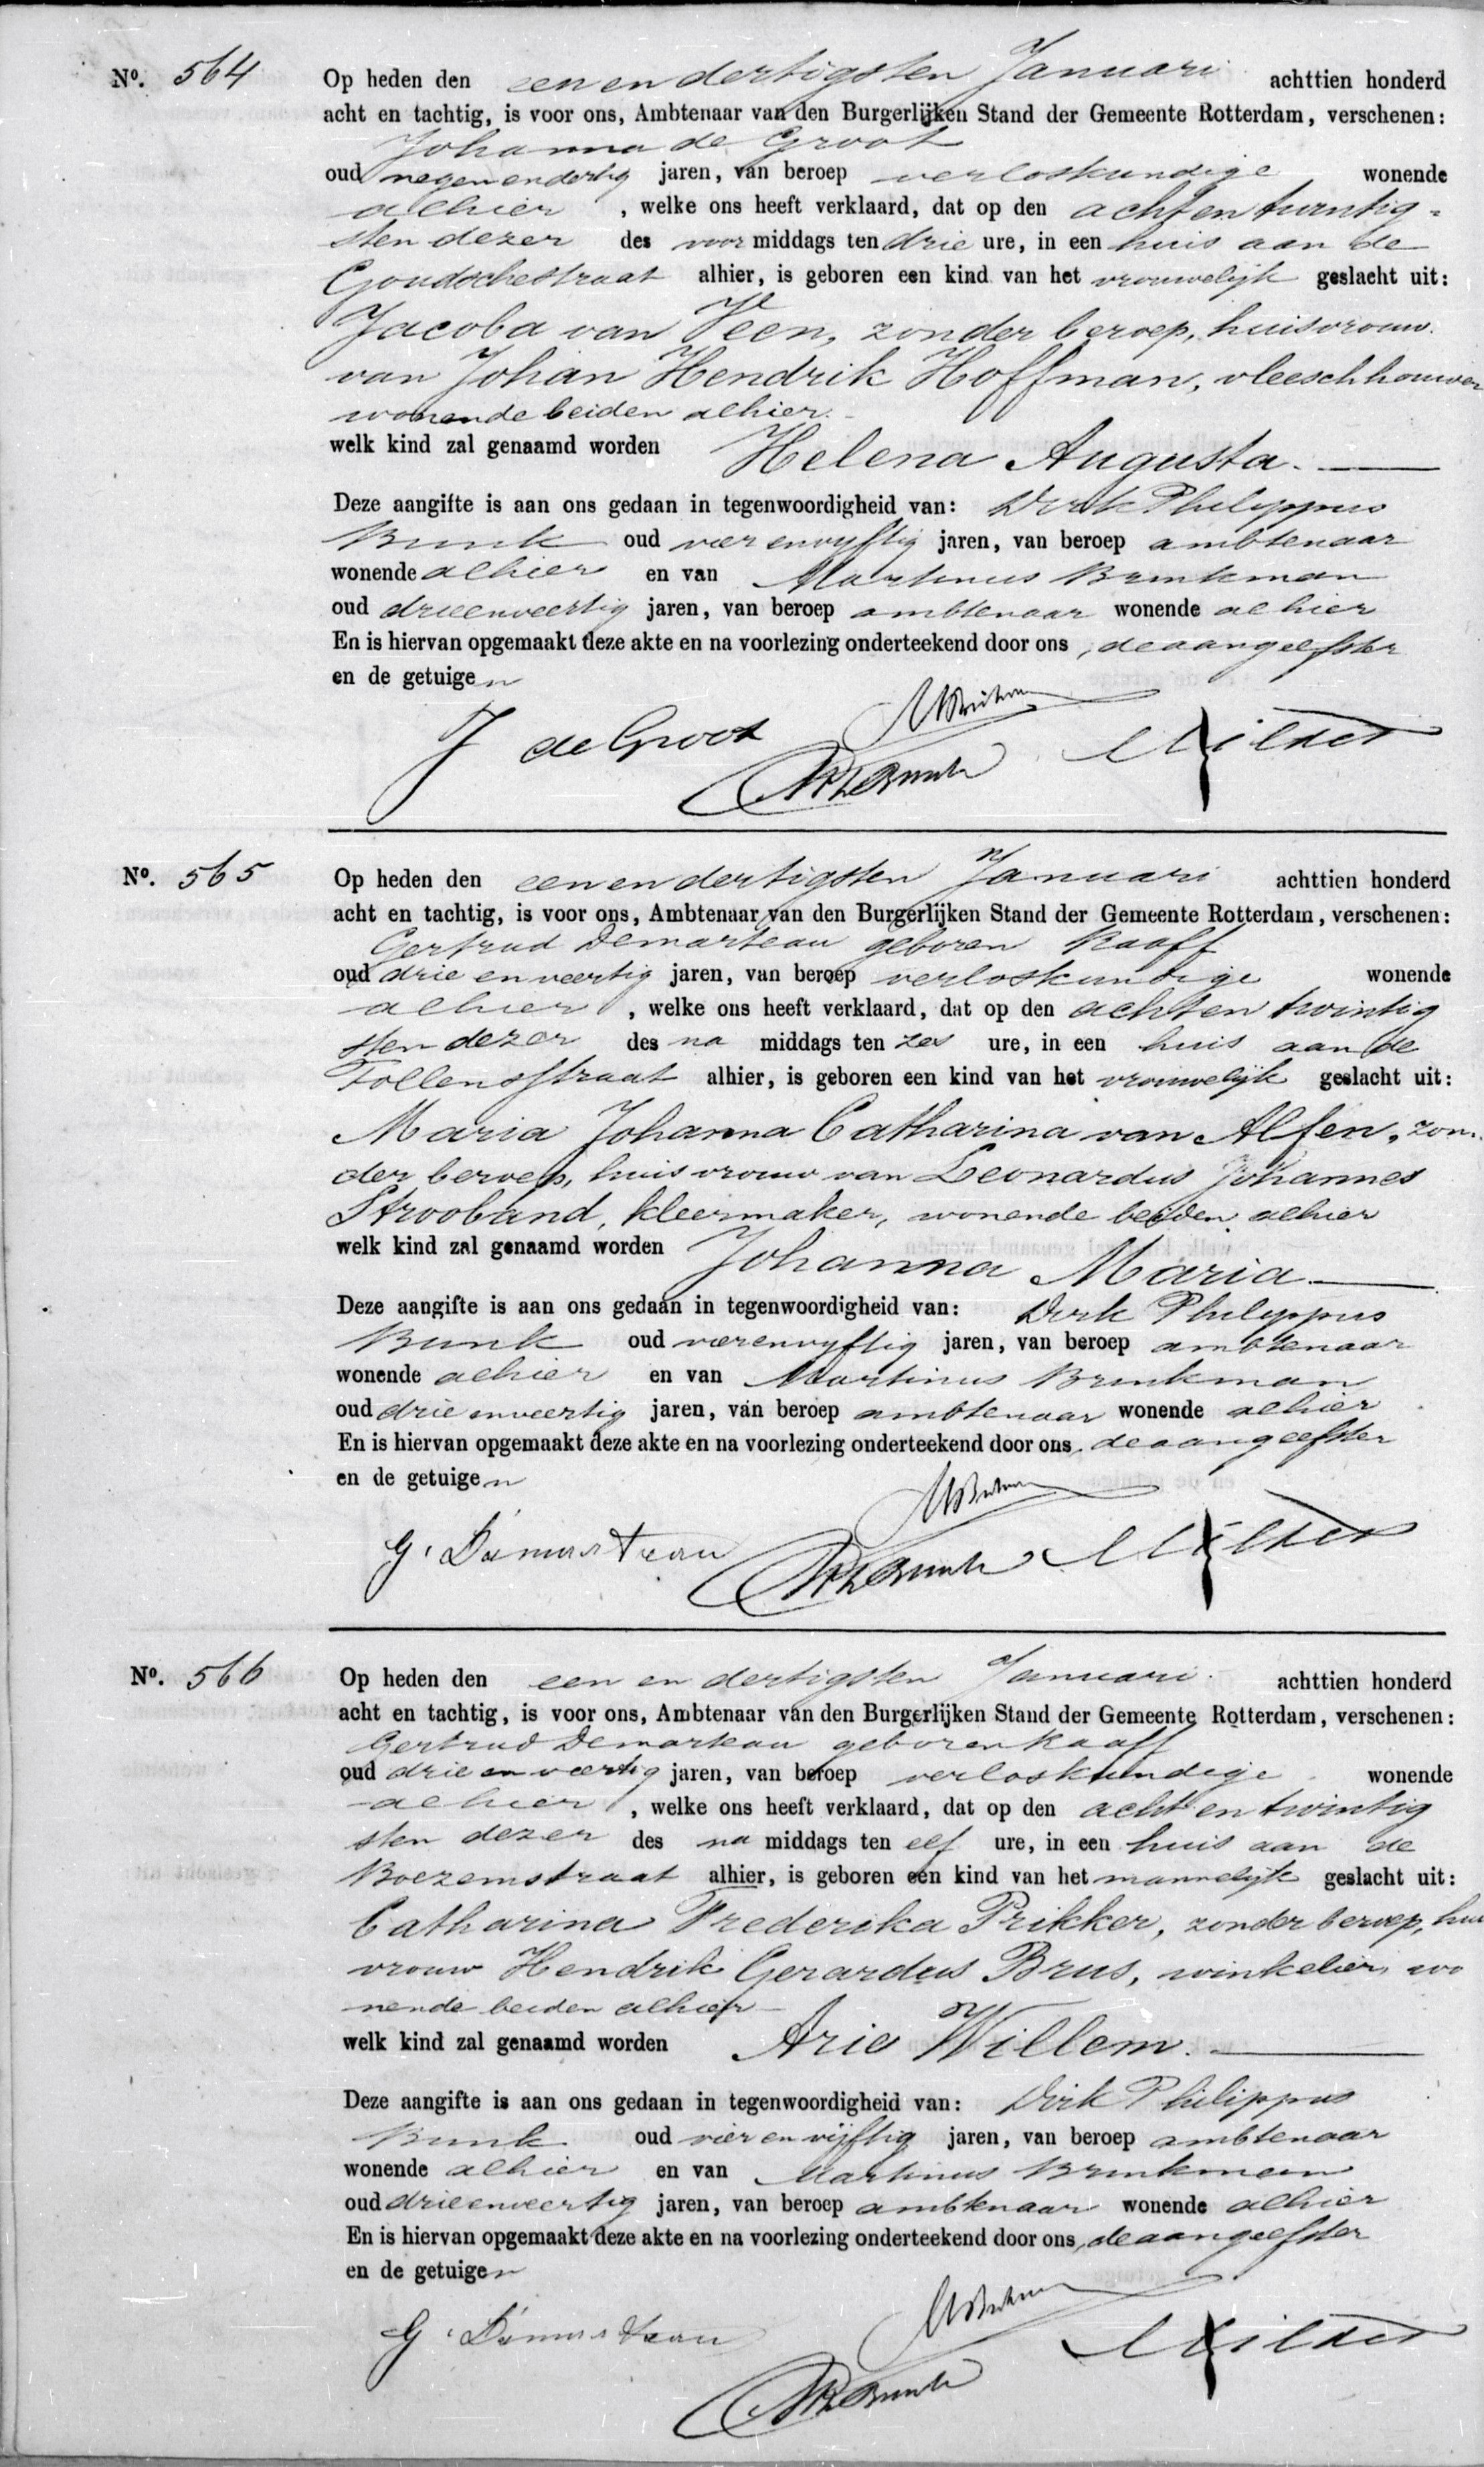 No. 564 Op heden den een en dertigsten Januari achttien honderd
acht en tachtig, is voor ons, Ambtenaar van den Burgerlijken Stand der Gemeente Rotterdam, verschenen:
Johanna de Groot
oud negenendertig jaren, van beroep verloskundige wonende
alhier, welke ons heeft verklaard, dat op den acht en twintig-
sten dezer des voor middags ten drie ure, in een huis aan de
Goudschestraat alhier, is geboren een kind van het vrouwelijk geslacht uit:
Jacoba van Veen, zonder beroep, huisvrouw
van Johan Hendrik Hoffman, vleeschhouwer
wonende beiden alhier.
welk kind zal genaamd worden Helena Augusta.
Deze aangifte is aan ons gedaan in tegenwoordigheid van: Dirk Philippus
Bunk oud vierenvyftig jaren, van beroep ambtenaar
wonende alhier en van Martinus Brinkman
oud drieenveertig jaren, van beroep ambtenaar wonende alhier
En is hiervan opgemaakt deze akte en na voorlezing onderteekend door ons, de aangeefster
en de getuigen
J de Groot
No. 565 Op heden den eenendertigsten Januari achttien honderd
acht en tachtig, is voor ons, Ambtenaar van den Burgerlijken Stand der Gemeente Rotterdam, verschenen:
Gertrud Demarteau geboren Kaaff
oud drie en veertig jaren, van beroep verloskundige wonende
alhier, welke ons heeft verklaard, dat op den acht en twintig
sten dezer des na middags ten zes ure, in een huis aan de
Tollensstraat alhier, is geboren een kind van het vrouwelijk geslacht uit:
Maria Johanna Catharina van Alfen, zon-
der beroep, huisvrouw van Leonardus Johannes
Strooband, kleermaker, wonende beiden alhier
welk kind zal genaamd worden Johanna Maria
Deze aangifte is aan ons gedaan in tegenwoordigheid van: Dirk Philippus
Bunk oud vierenvyftig jaren, van beroep ambtenaar
wonende alhier en van Martinus Brinkman
oud drie enveertig jaren, van beroep ambtenaar wonende alhier
En is hiervan opgemaakt deze akte en na voorlezing onderteekend door ons, de aangeefster
en de getuigen
G. Demarteau
No. 566 Op heden den een en dertigsten Januari achttien honderd
acht en tachtig, is voor ons, Ambtenaar van den Burgerlijken Stand der Gemeente Rotterdam, verschenen:
Gertrud Demarteau geboren Kaaff
oud drie en veertig jaren, van beroep verloskundige wonende
alhier, welke ons heeft verklaard, dat op den acht en twintig
sten dezer des na middags ten elf ure, in een huis aan de
Boezemstraat alhier, is geboren een kind van het mannelijk geslacht uit:
Catharina Frederika Prikker, zonder beroep, huis
vrouw Hendrik Gerardus Brus, winkelier, wo
nende beiden alhier
welk kind zal genaamd worden Arie Willem.
Deze aangifte is aan ons gedaan in tegenwoordigheid van: Dirk Philippus
Bunk oud vier en vijftig jaren, van beroep ambtenaar
wonende alhier en van Martinus Brinkman
oud drieenveertig jaren, van beroep ambtenaar wonende alhier
En is hiervan opgemaakt deze akte en na voorlezing onderteekend door ons, de aangeefster
en de getuigen
G. Demarteau